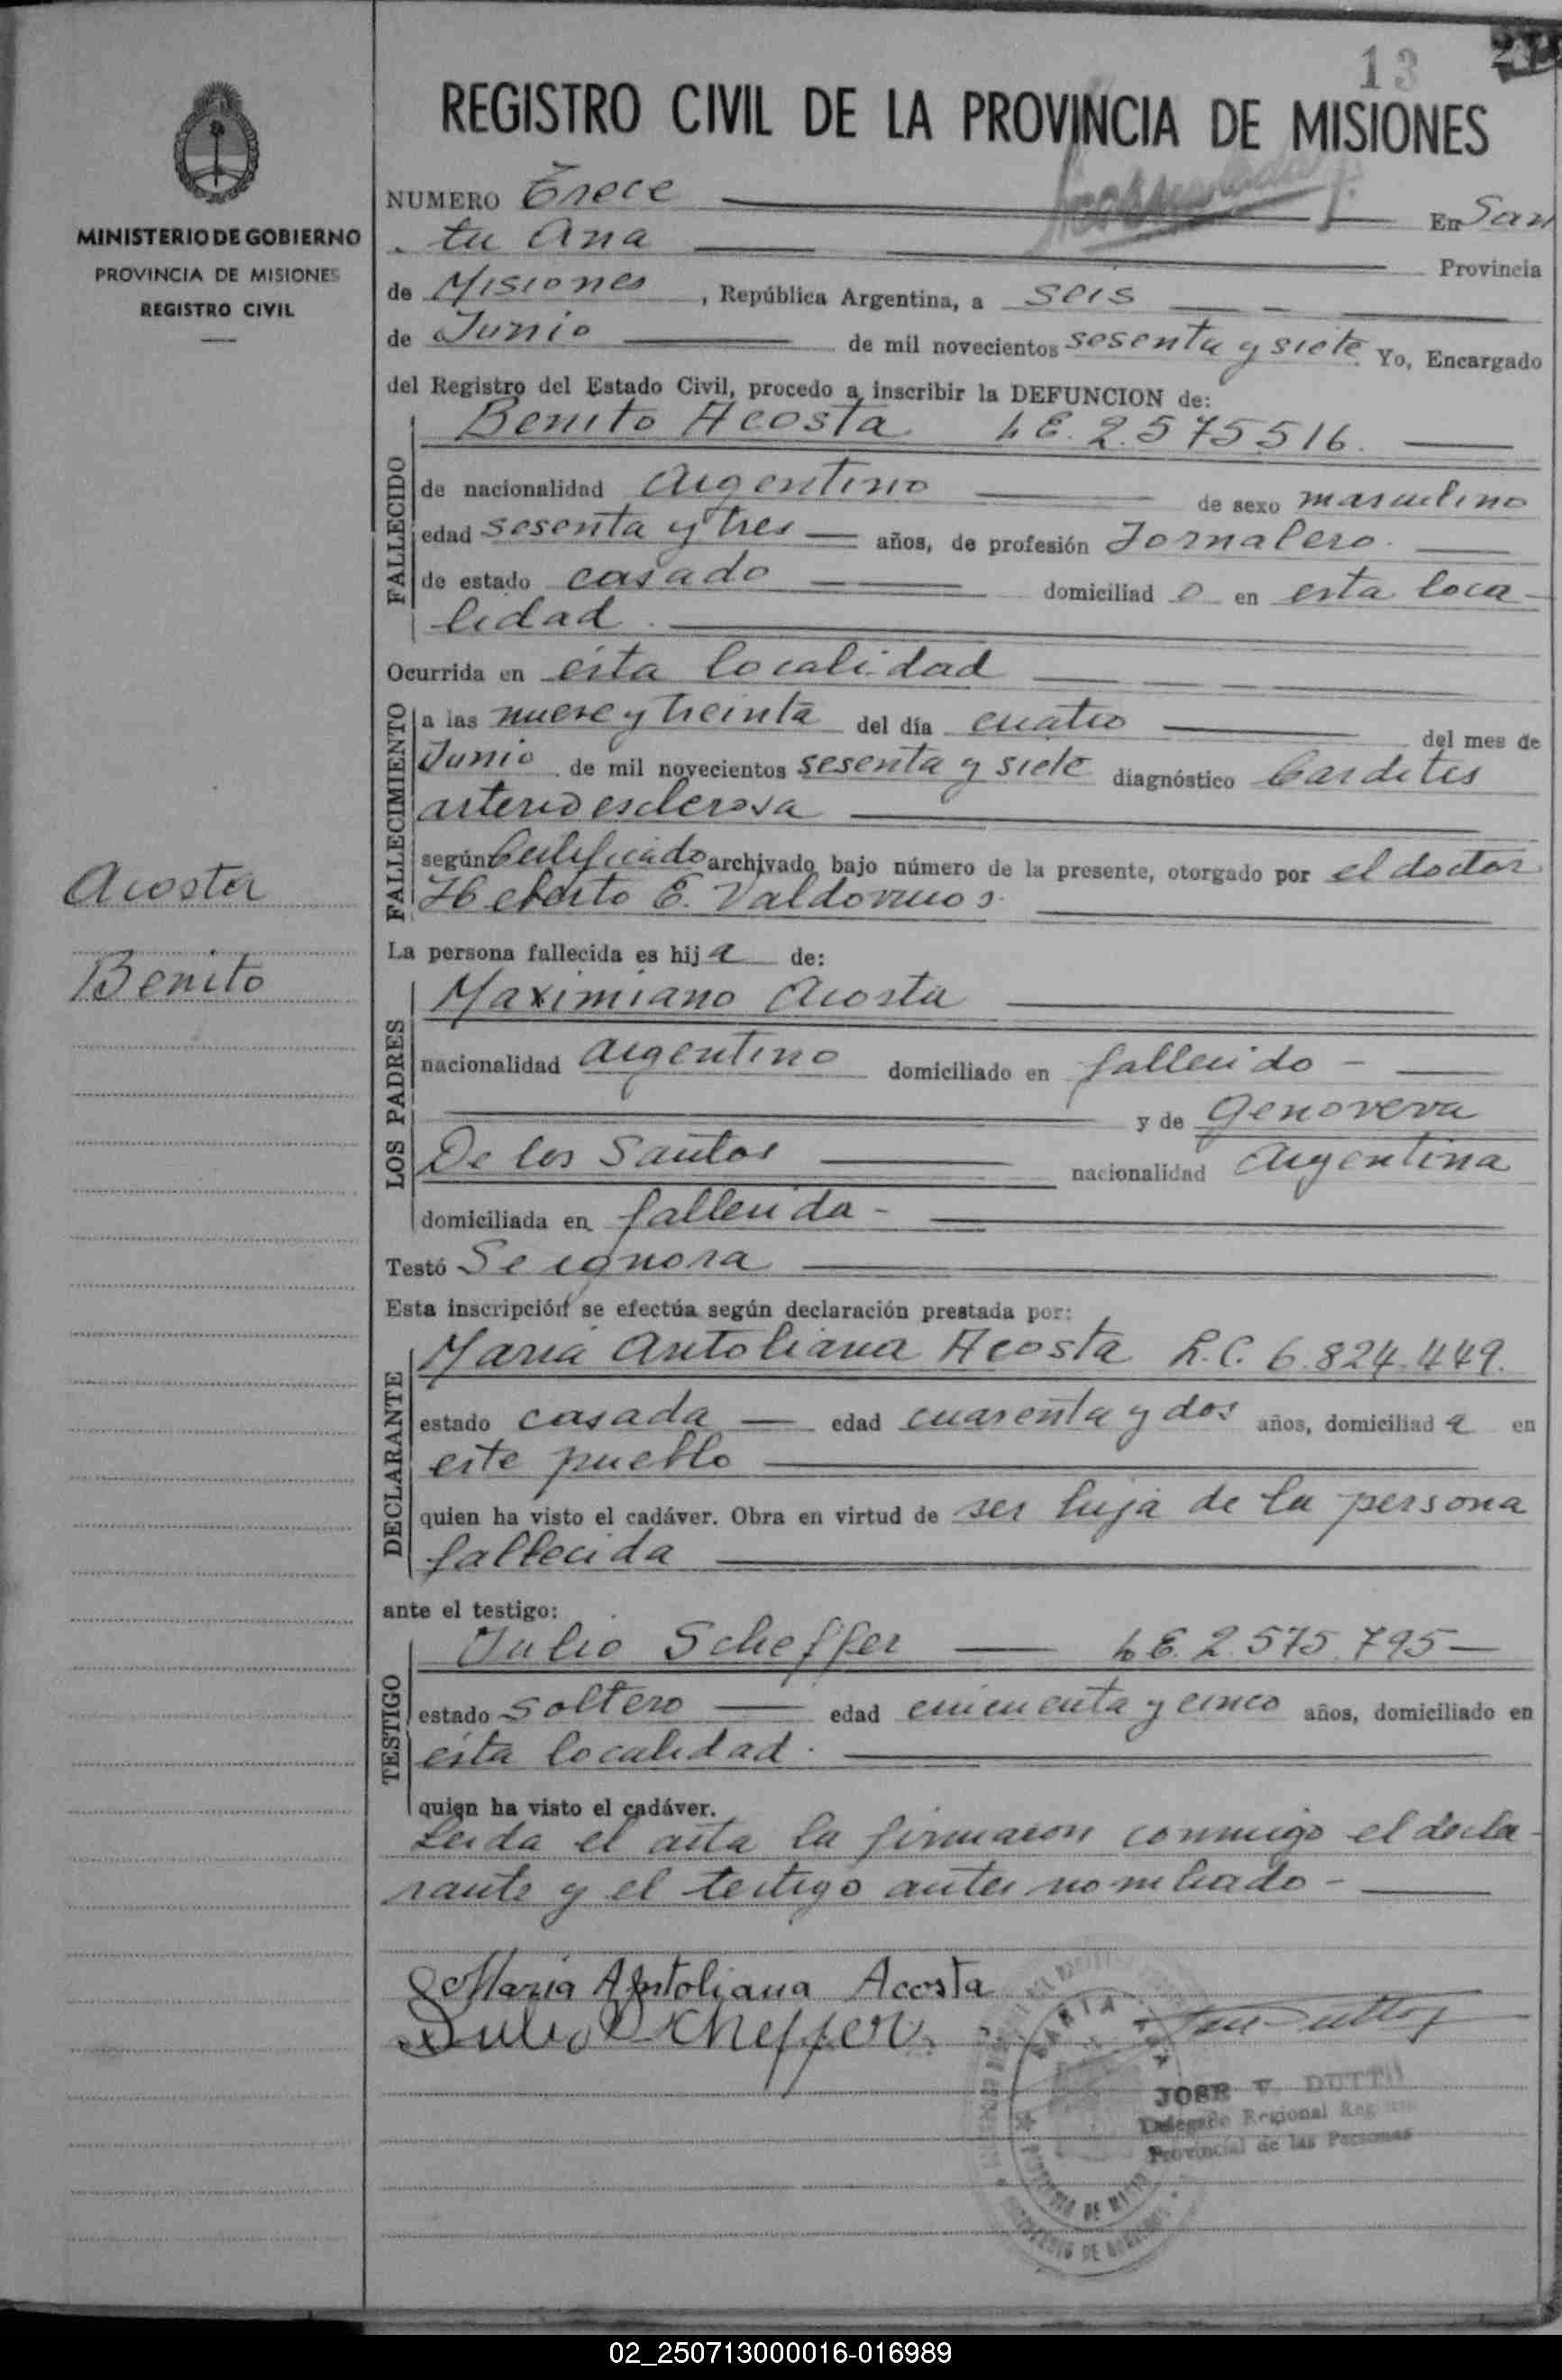 13
REGISTRO CIVIL DE LA PROVINCIA DE MISIONES
MINISTERIO DE GOBIERNO
PROVINCIA DE MISIONES
REGISTRO CIVIL
NUMERO Trece En San
ta Ana Provincia
de Misiones, República Argentina, a seis
de Junio de mil novecientos sesenta y siete Yo, Encargado
del Registro del Estado Civil, procedo a inscribir la DEFUNCION de:
FALLECIDO
Benito Acosta L E. 2.575516.
de nacionalidad Argentino de sexo masculino
edad sesenta y tres años, de profesión Jornalero.
de estado casado domiciliad o en esta loca-
lidad.
Ocurrida en esta localidad
FALLECIMIENTO
a las nueve y treinta del día cuatro del mes de
Junio de mil novecientos sesenta y siete diagnóstico Carditis
arterioesclerosa
según Certificado archivado bajo número de la presente, otorgado por el doctor
Heberto E. Valdovinos.
Acosta
Benito
La persona fallecida es hij a de:
LOS PADRES
Maximiano Acosta
nacionalidad argentino domiciliado en fallecido -
y de Genoveva
De los Santos nacionalidad Argentina
domiciliada en fallecida -
Testó Se ignora
Esta inscripción se efectúa según declaración prestada por:
DECLARANTE
Maria Antoliana Acosta L.C. 6.824.449.
estado casada edad cuarenta y dos años, domiciliad a en
este pueblo
quien ha visto el cadáver. Obra en virtud de ser hija de la persona
fallecida
ante el testigo:
TESTIGO
Julio Scheffer L E. 2.575.795-
estado soltero edad cincuenta y cinco años, domiciliado en
esta localidad.
quien ha visto el cadáver.
Leida el acta la firmaron conmigo el decla-
rante y el testigo antes nombrado -
Maria Antoliana Acosta
Julio Scheffer
JOSE V. DUTTO
Delegado Regional Registro
Provincial de las Personas
02_250713000016-016989